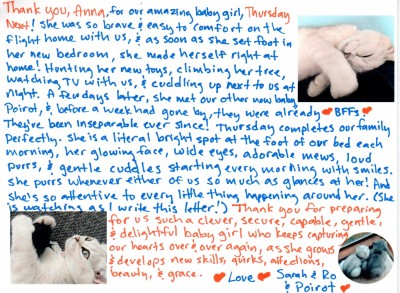 Thank you, Anna, for our amazing baby girl, Thursday
Next! She was so brave & easy to comfort on the
flight home with us, & as soon as she set foot in
her new bedroom, she made herself right at
home! Hunting her new toys, climbing her tree,
watching TV with us, & cuddling up next to us at
night. A few days later, she met our other now baby
Poirot, & before a week had gone by, they were already ❤ BFFs! ❤
They've been inseparable ever since! Thursday completes our family
perfectly. She is a literal bright spot at the foot of our bed each
morning, her glowing face, wide eyes, adorable mews, loud
purrs, & gentle cuddles starting every morning with smiles.
She purrs whenever either of us so much as glances at her! And
she's so attentive to every little thing happening around her. (She
is watching as I write this letter!) Thank you for preparing
for us such a clever, secure, capable, gentle,
& delightful baby girl who keeps capturing
our hearts over & over again, as she grows
& develops new skills, quirks, affections,
beauty, & grace. ❤ Love ❤ Sarah & Ro
& Poirot ❤